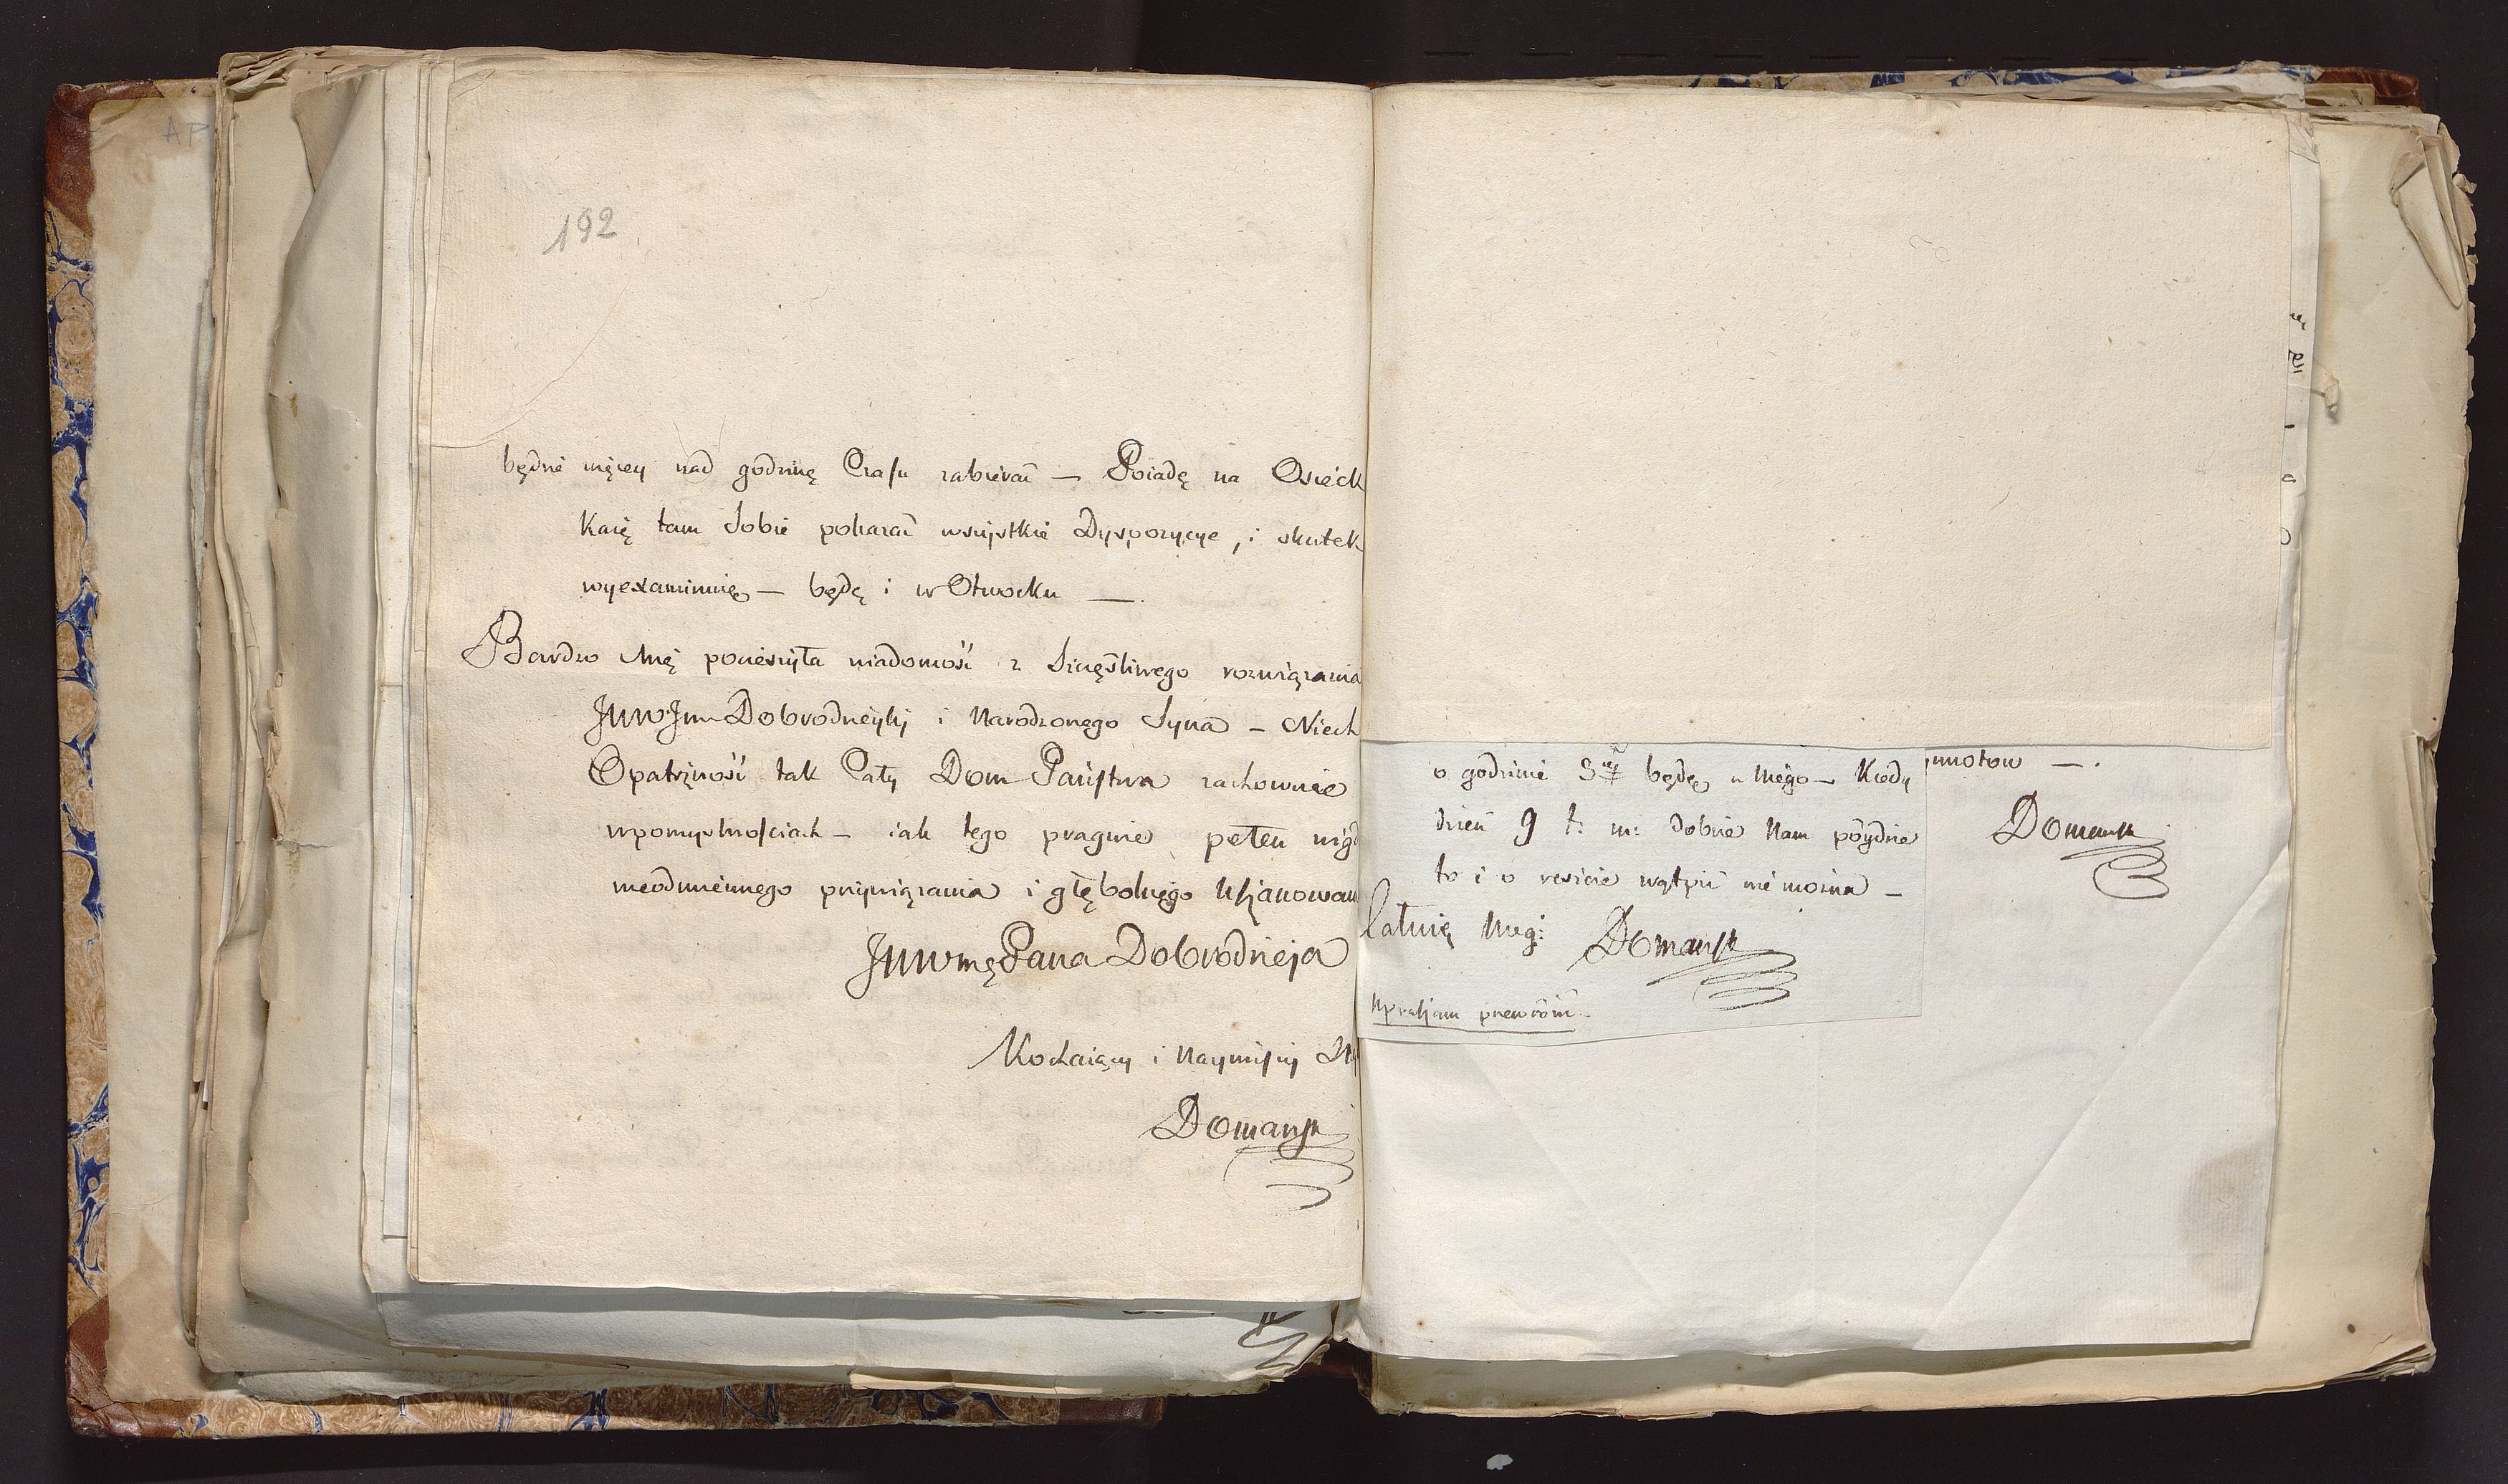 192
będzie więcey nad godzinę Czasu zabierać — Poiadę na Osieck
Każę tam Sobie pokazać wszystkie Dyspozycye, i skutek
wyexaminuię — będę i w Otwocku —.
Bardzo Mię pocieszyła wiadomość z Szczęśliwego rozwiązania
JWJm Dobrodzieyki i Narodzonego Syna — Niech
Opatrzność tak Cały Dom Państwa zachowuie
w pomyslnościach — iak tego pragnie pełen
nieodmiennego przywiązania i głębokiego Uszanowan
JWWmę Pana Dobrodzieja
Kochaiący i Nayniższy
Domansk
o godzinie 3 będę u niego — Kiedy
dzień 9 t: m: dobrze Nam poydzie
to i o reszcie wątpić nie można —
Całuię Nog: Domansk
Upraszam przewrócić
Domansk